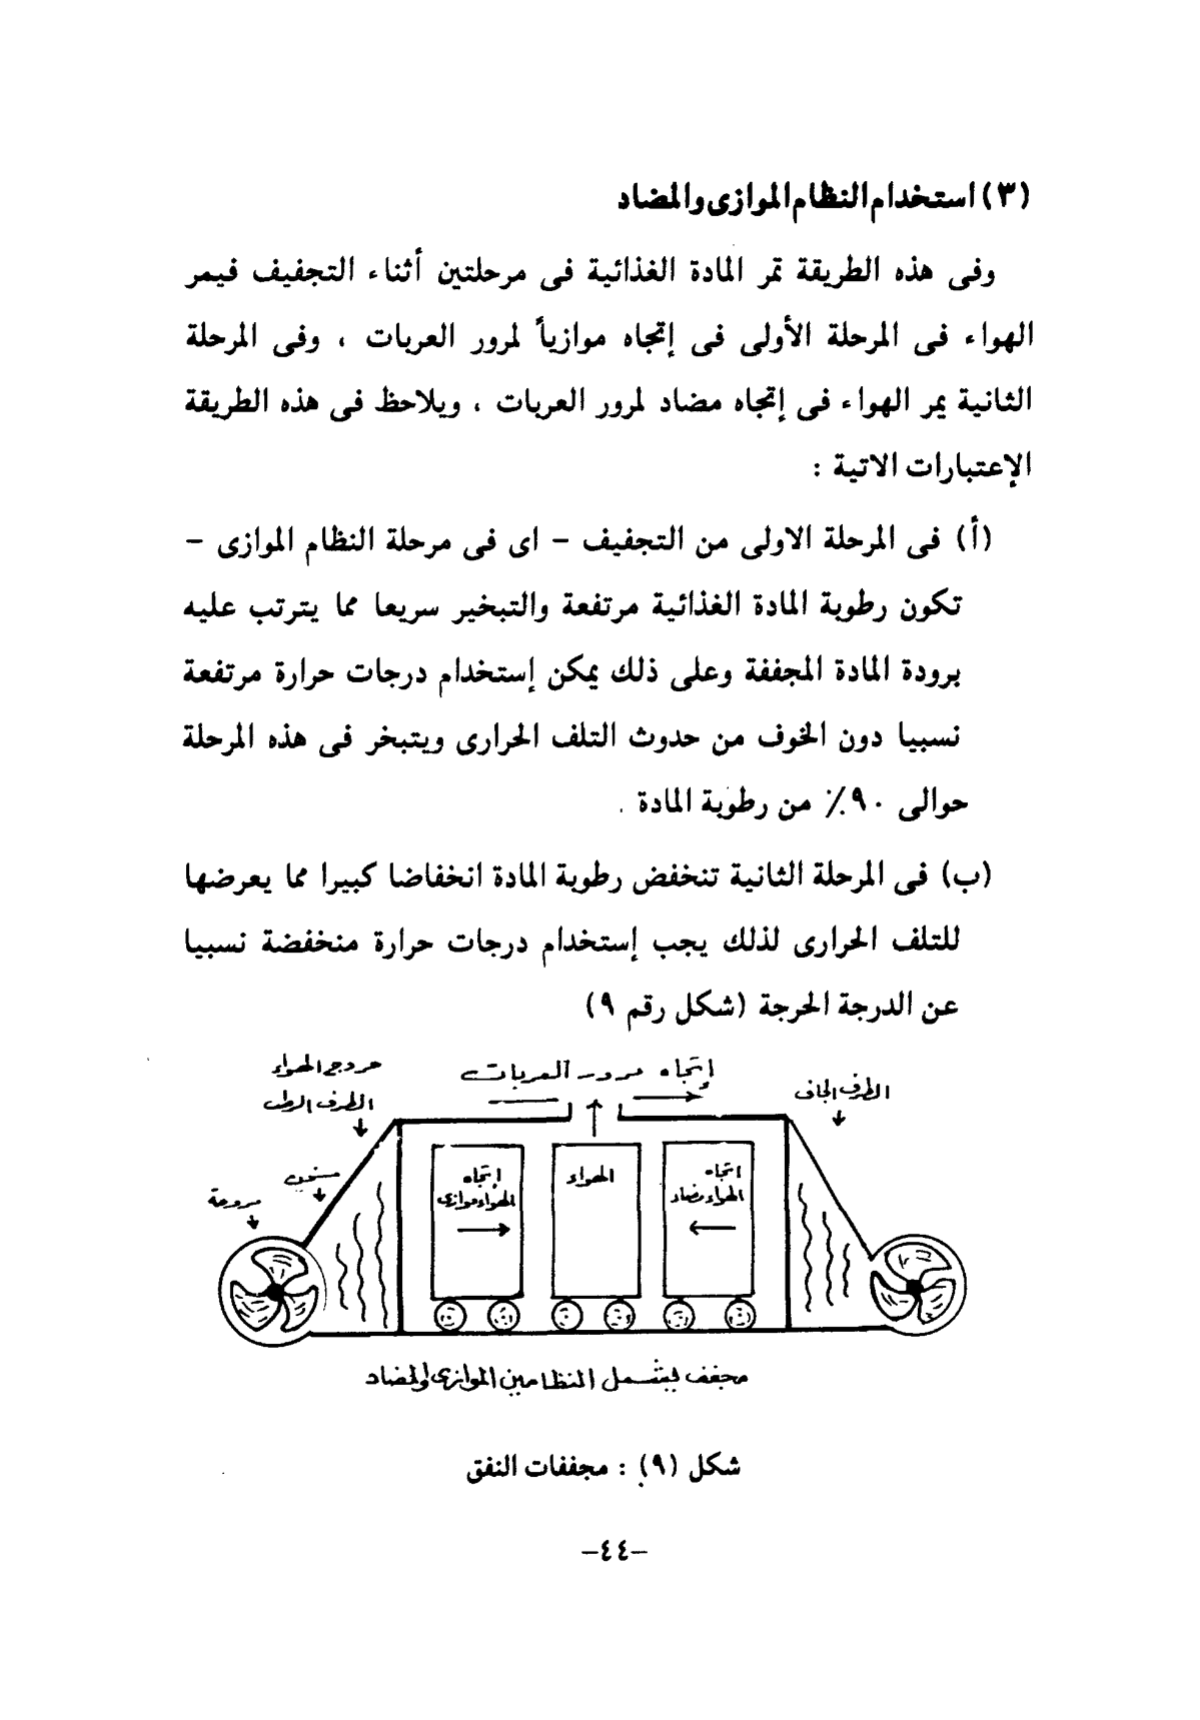 (٣) استخدام النظام الموازى والمضاد
وفى هذه الطريقة تمر المادة الغذائية فى مرحلتين أثناء التجفيف فيمر
الهواء فى المرحلة الأولى فى إتجاه موازياً لمرور العربات ، وفى المرحلة
الثانية يمر الهواء فى إتجاه مضاد لمرور العربات ، ويلاحظ فى هذه الطريقة
الإعتبارات الاتية :
(أ) فى المرحلة الاولى من التجفيف – اى فى مرحلة النظام الموازى –
تكون رطوبة المادة الغذائية مرتفعة والتبخير سريعا مما يترتب عليه
برودة المادة المجففة وعلى ذلك يمكن إستخدام درجات حرارة مرتفعة
نسبيا دون الخوف من حدوث التلف الحرارى ويتبخر فى هذه المرحلة
حوالى ٩٠٪ من رطوبة المادة .
(ب) فى المرحلة الثانية تنخفض رطوبة المادة انخفاضا كبيرا مما يعرضها
للتلف الحرارى لذلك يجب إستخدام درجات حرارة منخفضة نسبيا
عن الدرجة الحرجة (شكل رقم ٩)
إتجاه مرور العربات
خروج الهواء
الطرف الجاف
الطرف الرطب
اتجاه
الهواء مضاد
الهواء
إتجاه
الهواء موازى
سخين
مروحة
مجفف يشمل النظامين الموازى والمضاد
شكل (٩) : مجففات النفق
–٤٤–